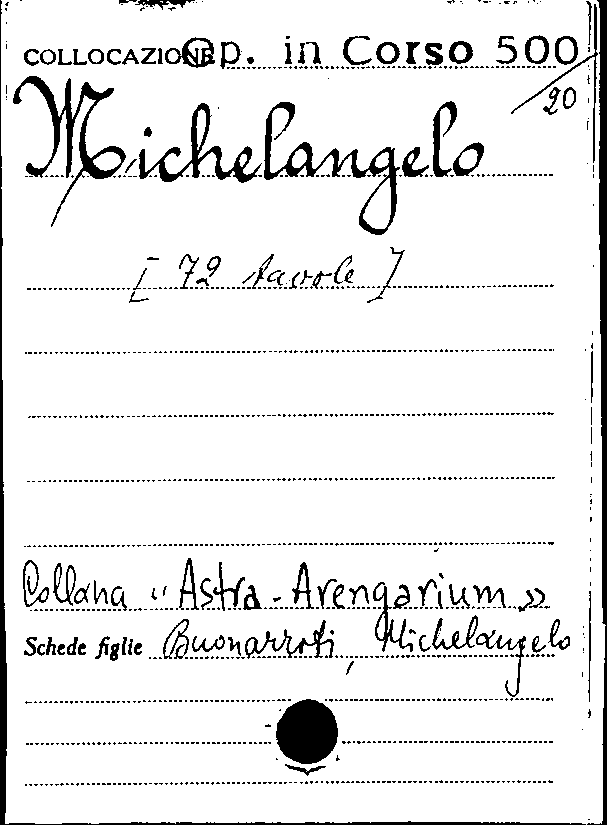 COLLOCAZIONE Op. in Corso 500
/20
Michelangelo
[72 tavole]
Collana "Astra-Arengarium"
Schede figlie Buonarroti, Michelangelo